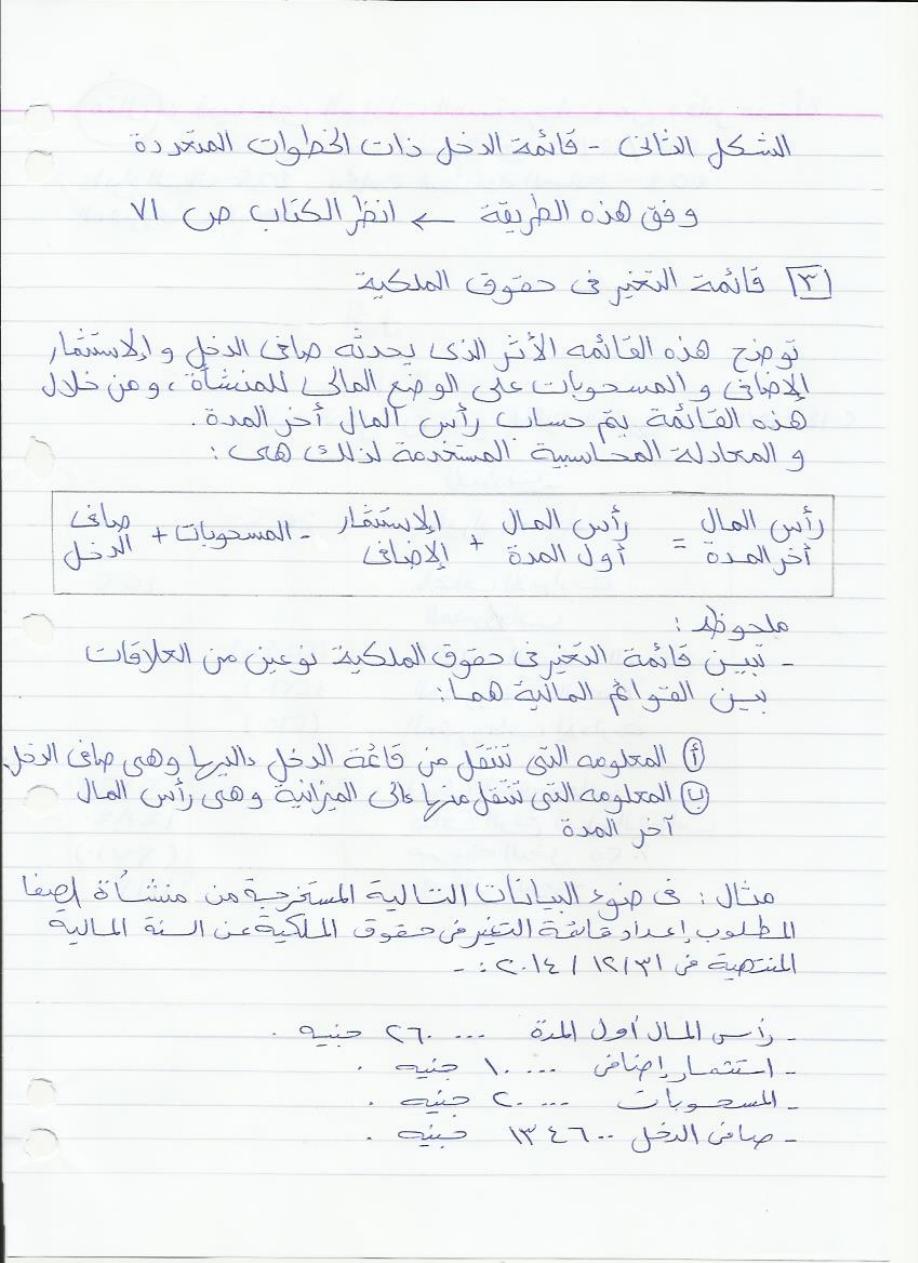 الشكل الثانى - قائمة الدخل ذات الخطوات المتعددة
وفق هذه الطريقة ← انظر الكتاب ص ٧١
٣ قائمة التغير فى حقوق الملكية
توضح هذه القائمه الأثر الذى يحدثه صافى الدخل و الإستثمار
الإضافى و المسحوبات على الوضع المالى للمنشأة ، و من خلال
هذه القائمة يتم حساب رأس المال أخر المدة .
و المعادلة المحاسبية المستخدمة لذلك هى :
رأس المال أخر المدة = رأس المال أول المدة + الإستثمار الإضافى - المسحوبات + صافى الدخل
ملحوظه :
- تبين قائمة التغير فى حقوق الملكية نوعين من العلاقات
بين القوائم المالية هما :
أ المعلومه التى تنتقل من قائمة الدخل إليها وهى صافى الدخل.
ب المعلومه التى تنتقل منها إلى الميزانية وهى رأس المال
آخر المدة
مثال : فى ضوء البيانات التالية المستخرجة من منشأة
المطلوب إعداد قائمة التغير فى حقوق الملكية عن السنة المالية
المنتهية فى ٣١/ ١٢ / ٢٠١٤ : -
- رأس المال أول المدة ٢٦٠٠٠٠ جنيه .
- استثمار إضافى ١٠٠٠٠ جنيه .
- المسحوبات ٢٠٠٠٠ جنيه .
- صافى الدخل ١٣٤٦٠٠ جنيه .